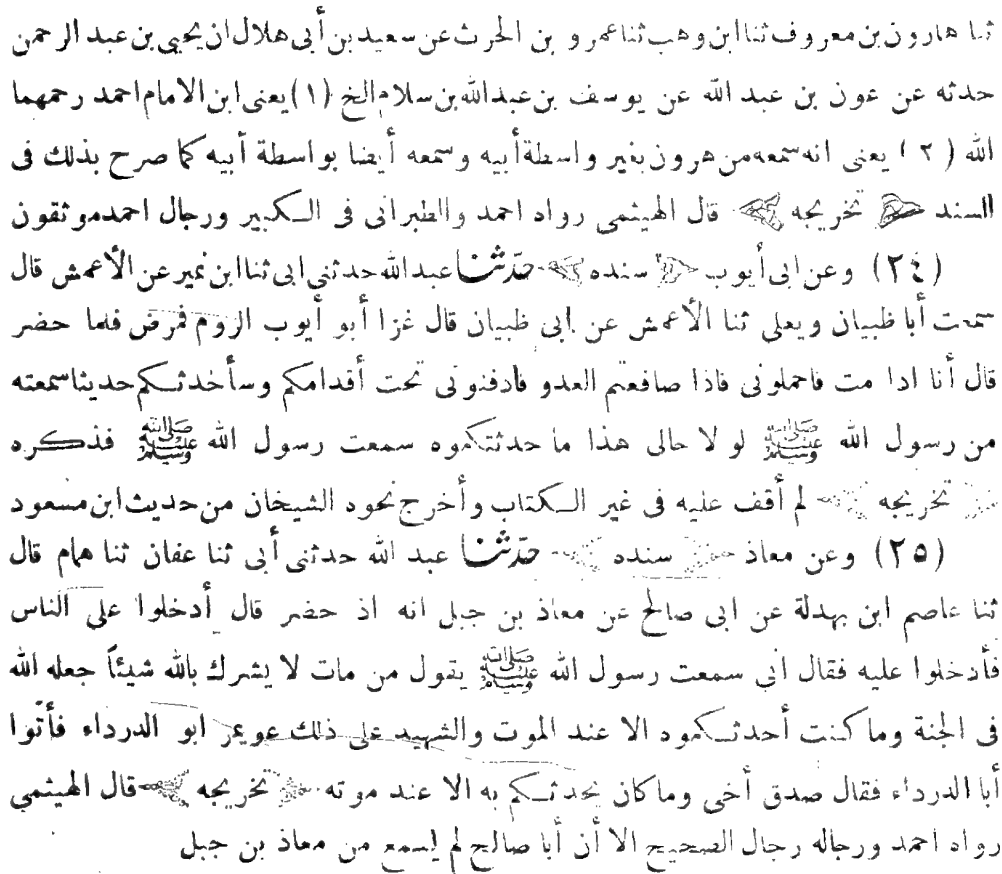 ثنا هارون بن معروف ثنا ابن وهب ثنا عمرو بن الحرث عن سعيد بن أبى هلال ان يحيى بن عبد الرحمن
حدثه عن عون بن عبد الله عن يوسف بن عبدالله بن سلام الخ (١) يعنى ابن الامام احمد رحمهما
الله (٢) يعنى انه سمعه من هرون بغير واسطة أبيه وسمعه أيضا بواسطة أبيه كما صرح بذلك فى
السند تخريجه قال الهيثمى رواد احمد والطبرانى فى الكبير ورجال احمد موثقون
(٢٤) وعن ابى أيوب سنده حدّثنا عبد الله حدثنى ابى ثنا ابن نمير عن الأعمش قال
سمعت أبا ظبيان ويعلى ثنا الأعمش عن ابى ظبيان قال غزا أبو أيوب الروم فمرض فلما حضر
قال أنا اذا مت فاحملونى فاذا صافعتم العدو فادفنونى تحت أقدامكم وسأحدثكم حديثا سمعته
من رسول الله ﷺ لو لا حالى هذا ما حدثتكموه سمعت رسول الله ﷺ فذكره
تخريجه لم أقف عليه فى غير الكتاب وأخرج نحود الشيخان من حديث ابن مسعود
(٢٥) وعن معاذ سنده حدّثنا عبد الله حدثنى أبى ثنا عفان ثنا همام قال
ثنا عاصم ابن بهدلة عن ابى صالح عن معاذ بن جبل انه اذ حضر قال أدخلوا على الناس
فأدخلوا عليه فقال أنى سمعت رسول الله ﷺ يقول من مات لا يشرك بالله شيئاً جعله الله
فى الجنة وما كنت أحدثكموه الا عند الموت والشهيد على ذلك عويمر ابو الدرداء فأتوا
أبا الدرداء فقال صدق أخى وما كان يحدثكم به الا عند موته تخريجه قال الهيثمي
رواه احمد ورجاله رجال الصحيح الا أن أبا صالح لم يسمع من معاذ بن جبل